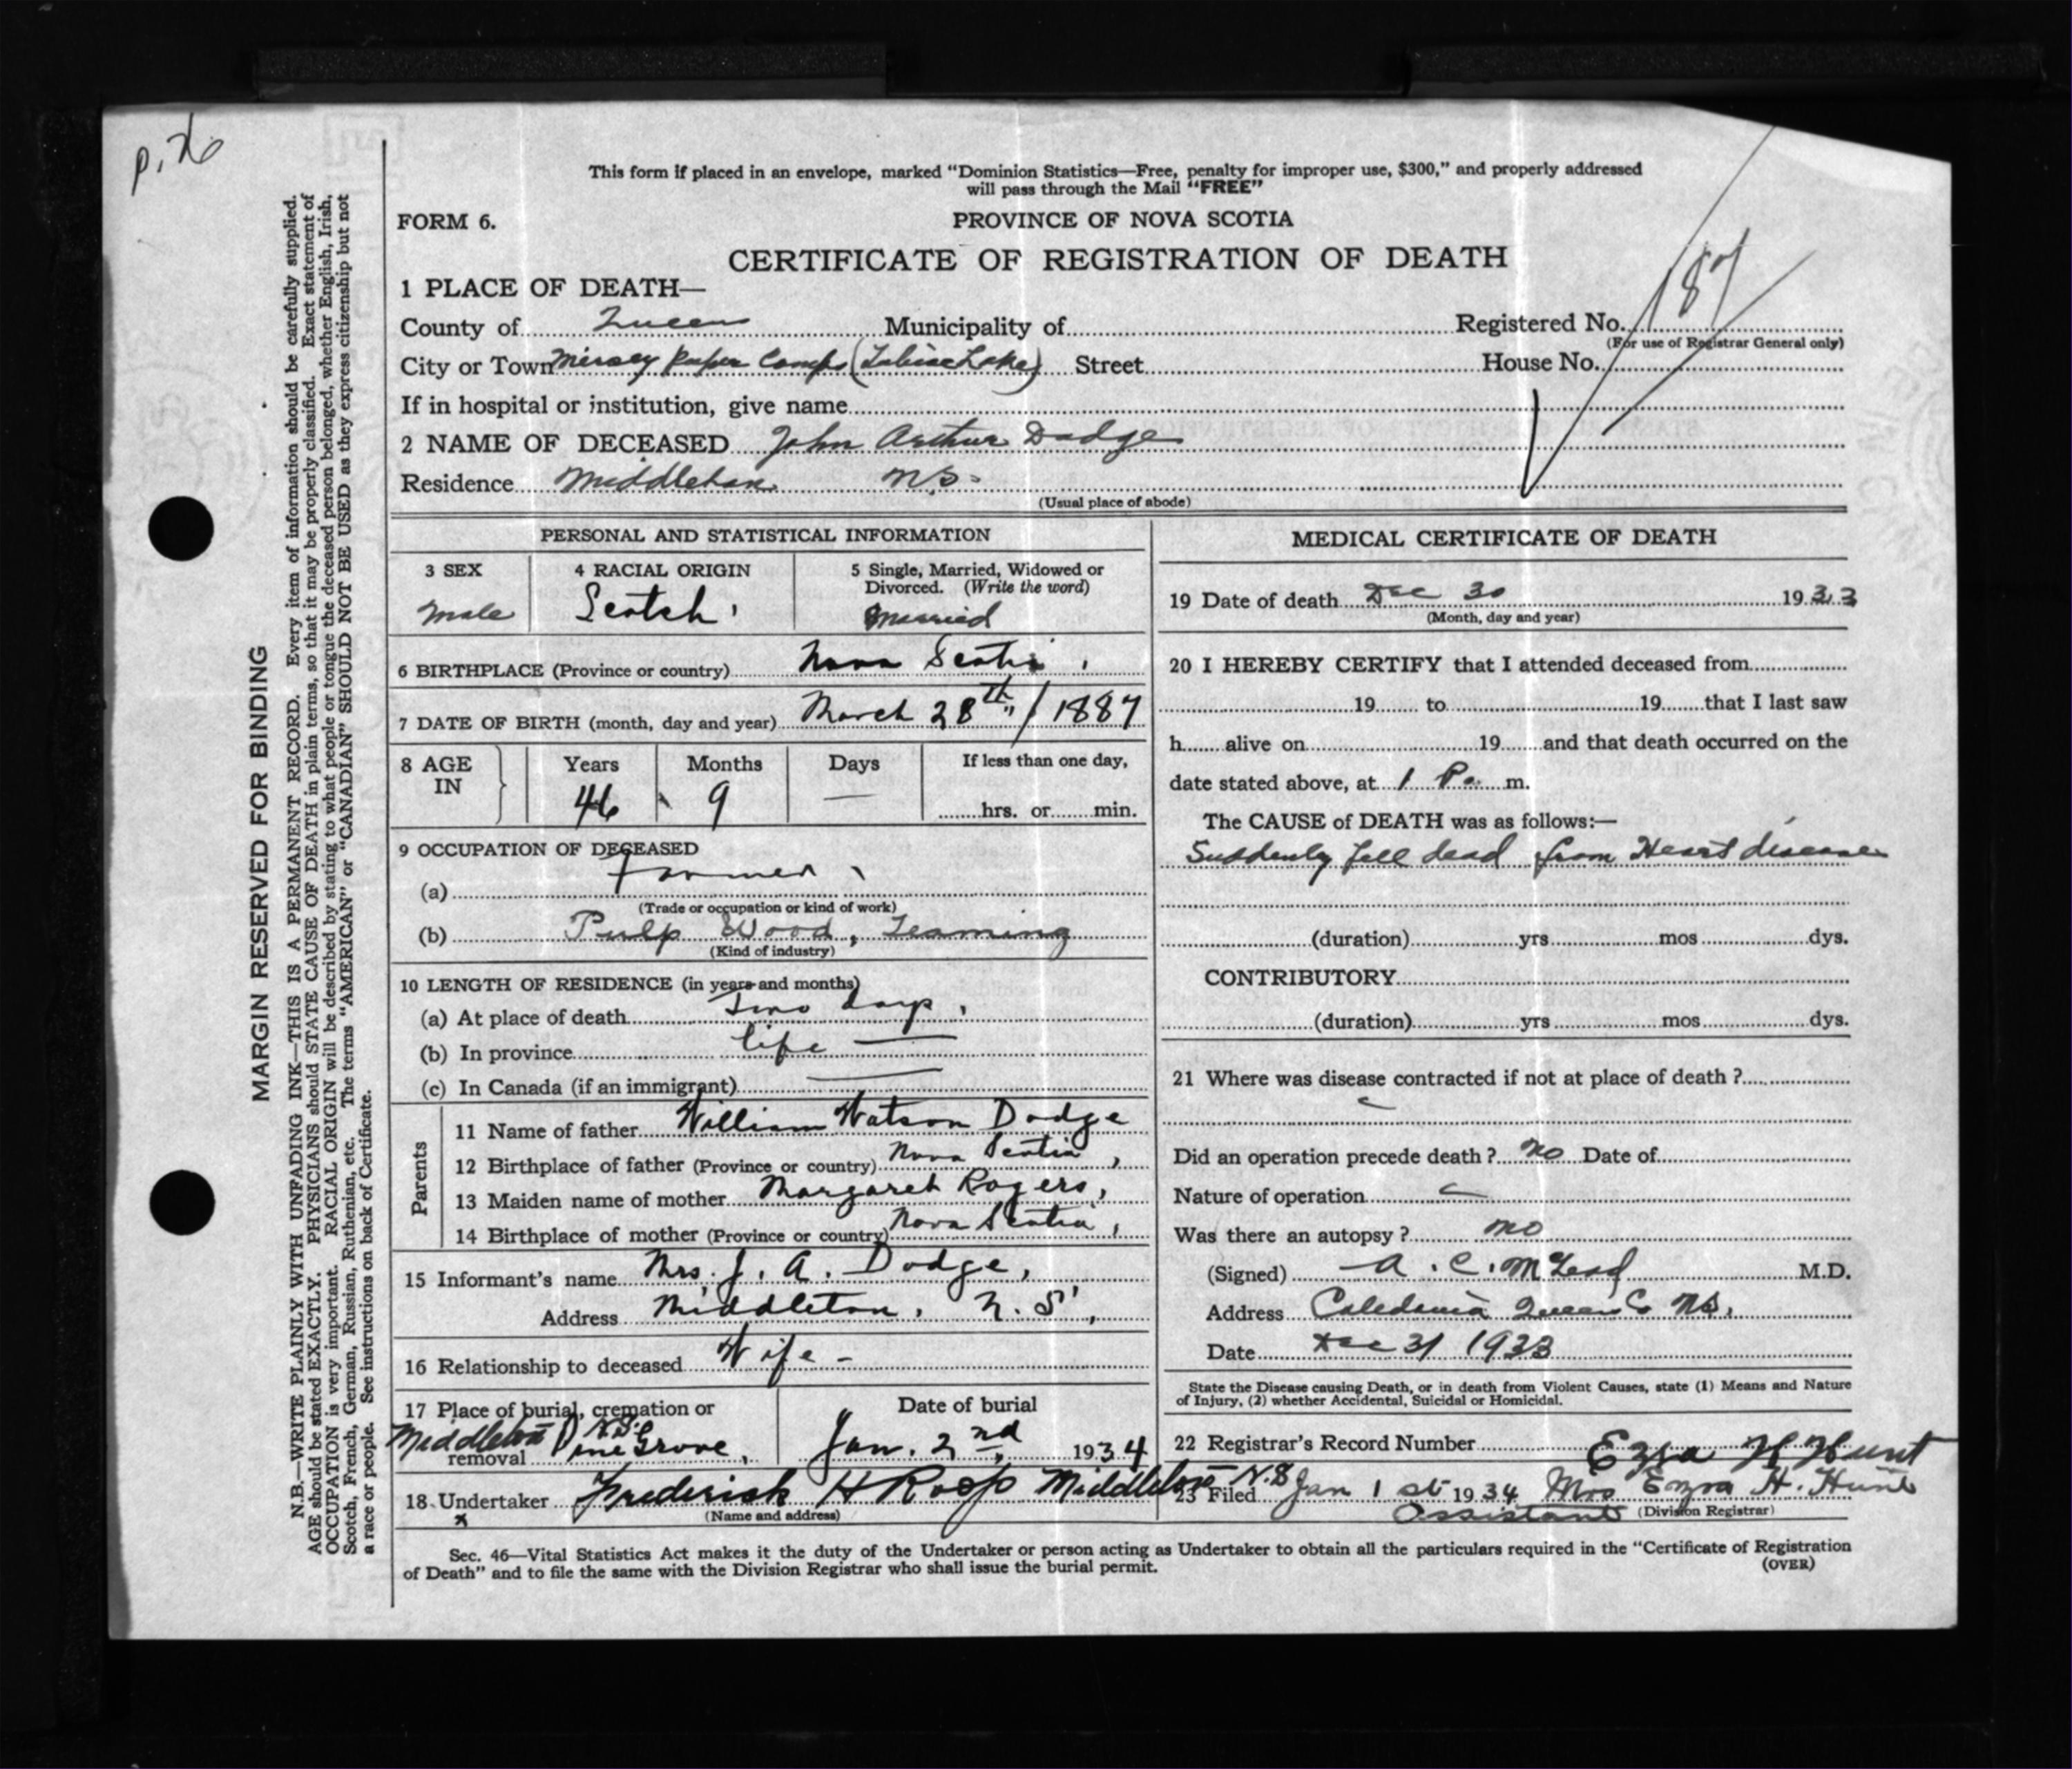 p. 76
This form if placed in an envelope, marked “Dominion Statistics—Free, penalty for improper use, $300,” and properly addressed
will pass through the Mail “FREE”
FORM 6. PROVINCE OF NOVA SCOTIA
CERTIFICATE OF REGISTRATION OF DEATH
1 PLACE OF DEATH—
County of Queens Municipality of Registered No. 187
(For use of Registrar General only)
City or Town Mersey Paper Camps ( Lake) Street House No.
If in hospital or institution, give name
2 NAME OF DECEASED John Arthur Dodge
Residence Middleton N.S.
(Usual place of abode)
PERSONAL AND STATISTICAL INFORMATION
3 SEX 4 RACIAL ORIGIN 5 Single, Married, Widowed or
Divorced. (Write the word)
Male Scotch Married
6 BIRTHPLACE (Province or country) Nova Scotia
7 DATE OF BIRTH (month, day and year) March 28th / 1887
8 AGE IN Years Months Days If less than one day,
46 9 — hrs. or min.
9 OCCUPATION OF DECEASED
(a) Farmer
(Trade or occupation or kind of work)
(b) Pulp Wood, Teaming
(Kind of industry)
10 LENGTH OF RESIDENCE (in years and months)
(a) At place of death Two days.
(b) In province life —
(c) In Canada (if an immigrant) —
Parents
11 Name of father William Watson Dodge
12 Birthplace of father (Province or country) Nova Scotia,
13 Maiden name of mother Margaret Rogers,
14 Birthplace of mother (Province or country) Nova Scotia,
15 Informant’s name Mrs. J. A. Dodge,
Address Middleton, N. S.,
16 Relationship to deceased Wife -
17 Place of burial, cremation or Date of burial
removal Middleton N.S. Pine Grove, Jan. 2nd, 1934
18 Undertaker Frederick H Roop Middleton N.S
(Name and address)
MEDICAL CERTIFICATE OF DEATH
19 Date of death Dec 30 1933
(Month, day and year)
20 I HEREBY CERTIFY that I attended deceased from
19 to 19 that I last saw
h alive on 19 and that death occurred on the
date stated above, at 1 P. m.
The CAUSE of DEATH was as follows:—
Suddenly fell dead from Heart disease
(duration) yrs mos dys.
CONTRIBUTORY
(duration) yrs mos dys.
21 Where was disease contracted if not at place of death ?
Did an operation precede death ? no Date of
Nature of operation
Was there an autopsy ? no
(Signed) A. C. McLeod M.D.
Address Caledonia Queens Co N.S.
Date Dec 31 1933
State the Disease causing Death, or in death from Violent Causes, state (1) Means and Nature
of Injury, (2) whether Accidental, Suicidal or Homicidal.
22 Registrar’s Record Number Ezra H Hunt
23 Filed Jan 1st 1934 Mrs Ezra H. Hunt
Assistant (Division Registrar)
Sec. 46—Vital Statistics Act makes it the duty of the Undertaker or person acting as Undertaker to obtain all the particulars required in the “Certificate of Registration
of Death” and to file the same with the Division Registrar who shall issue the burial permit. (OVER)
MARGIN RESERVED FOR BINDING
N.B.—WRITE PLAINLY WITH UNFADING INK—THIS IS A PERMANENT RECORD. Every item of information should be carefully supplied.
AGE should be stated EXACTLY. PHYSICIANS should STATE CAUSE OF DEATH in plain terms, so that it may be properly classified. Exact statement of
OCCUPATION is very important. RACIAL ORIGIN will be described by stating to what people or tongue the deceased person belonged, whether English, Irish,
Scotch, French, German, Russian, Ruthenian, etc. The terms “AMERICAN” or “CANADIAN” SHOULD NOT BE USED as they express citizenship but not
a race or people. See instructions on back of Certificate.